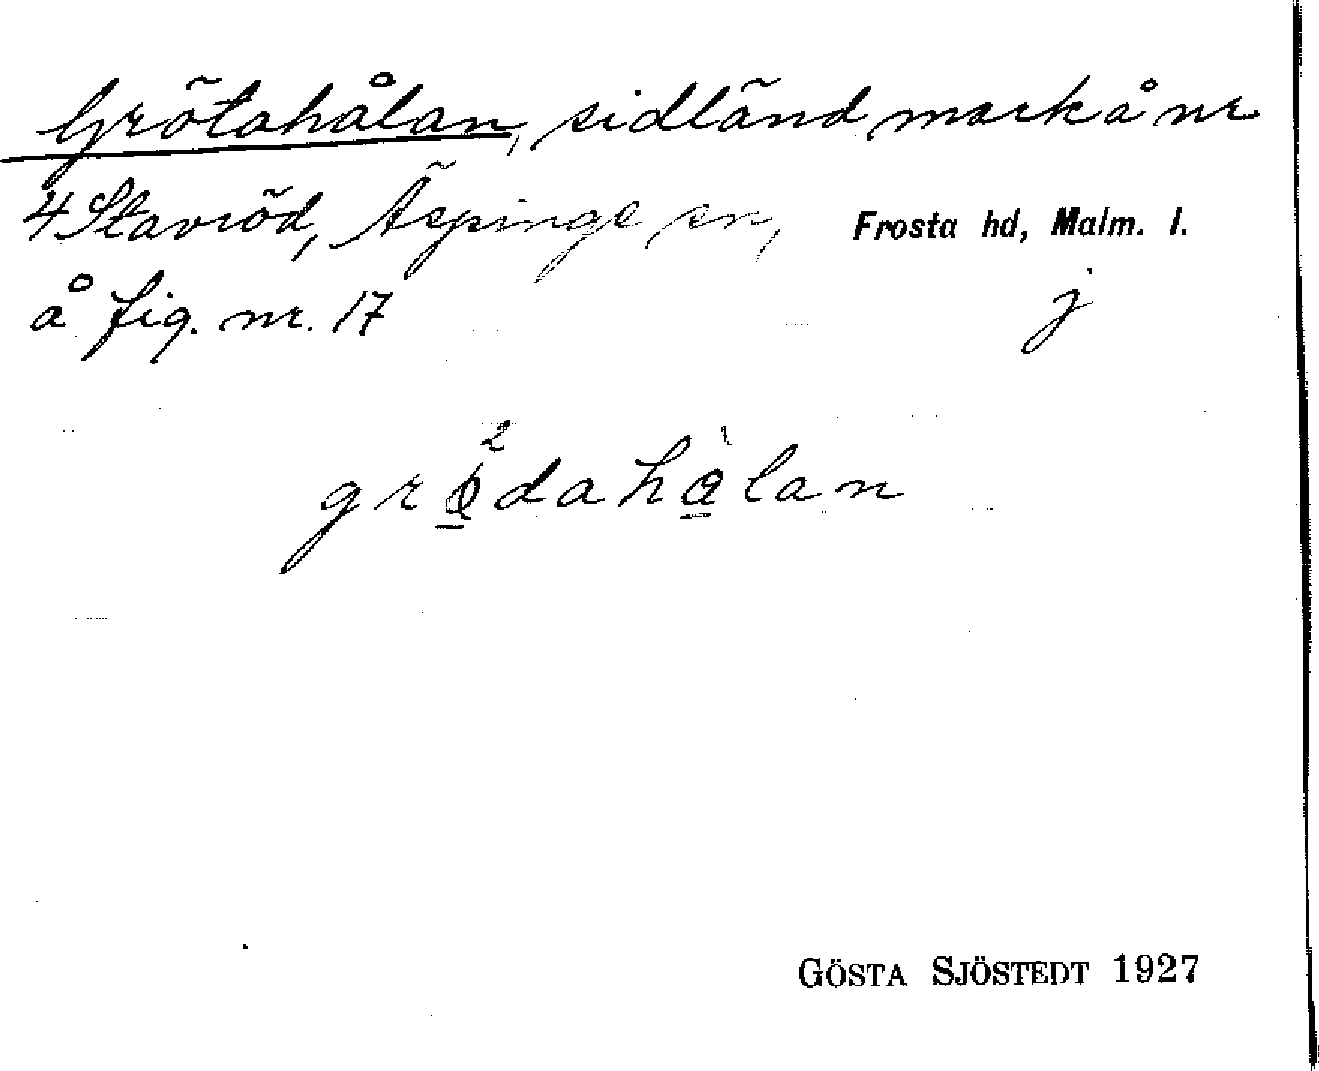 Grötahålan, sidländ mark å nr
4 Stavröd, Äspinge sn, Frosta hd, Malm. l.
å fig. nr. 17 j
grødahålan
GÖSTA SJÖSTEDT 1927